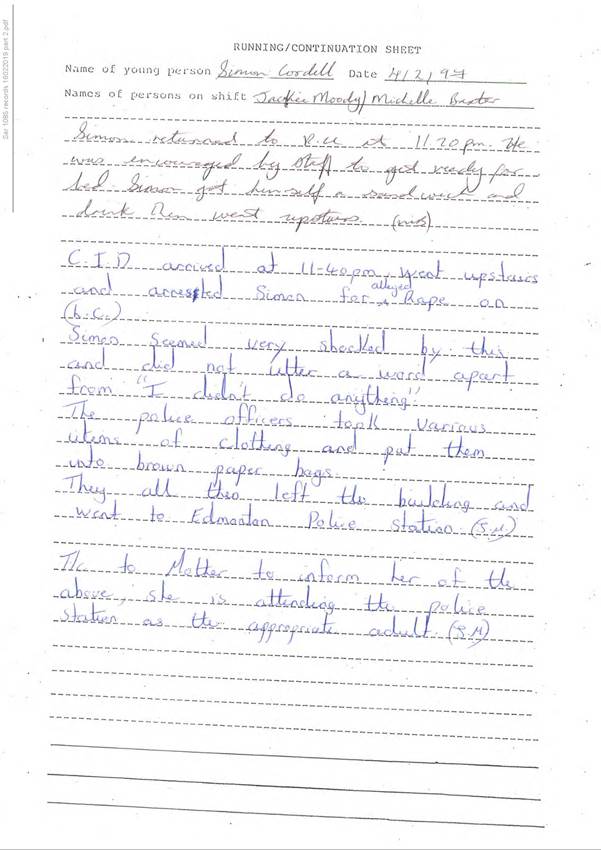 Sar 1085 records 16022019 part 2.pdf
RUNNING/CONTINUATION SHEET
Name of young person Simon Cordell Date 4/2/97
Names of persons on shift Jackie Moody/Michelle Baxter
Simon returned to R.U at 11.20pm. He
was encouraged by staff to get ready for
bed. Simon got himself a sandwich and
drink then went upstairs. (MB)
C.I.D arrived at 11-40pm, went upstairs
and arrested Simon for alleged Rape on
Simon seemed very shocked by this
and did not utter a word apart
from "I didn't do anything"
The police officers took various
items of clothing and put them
into brown paper bags.
They all then left the building and
went to Edmonton Police Station (J.M)
T/c to Mother to inform her of the
above, she is attending the police
station as the appropriate adult. (J.M)